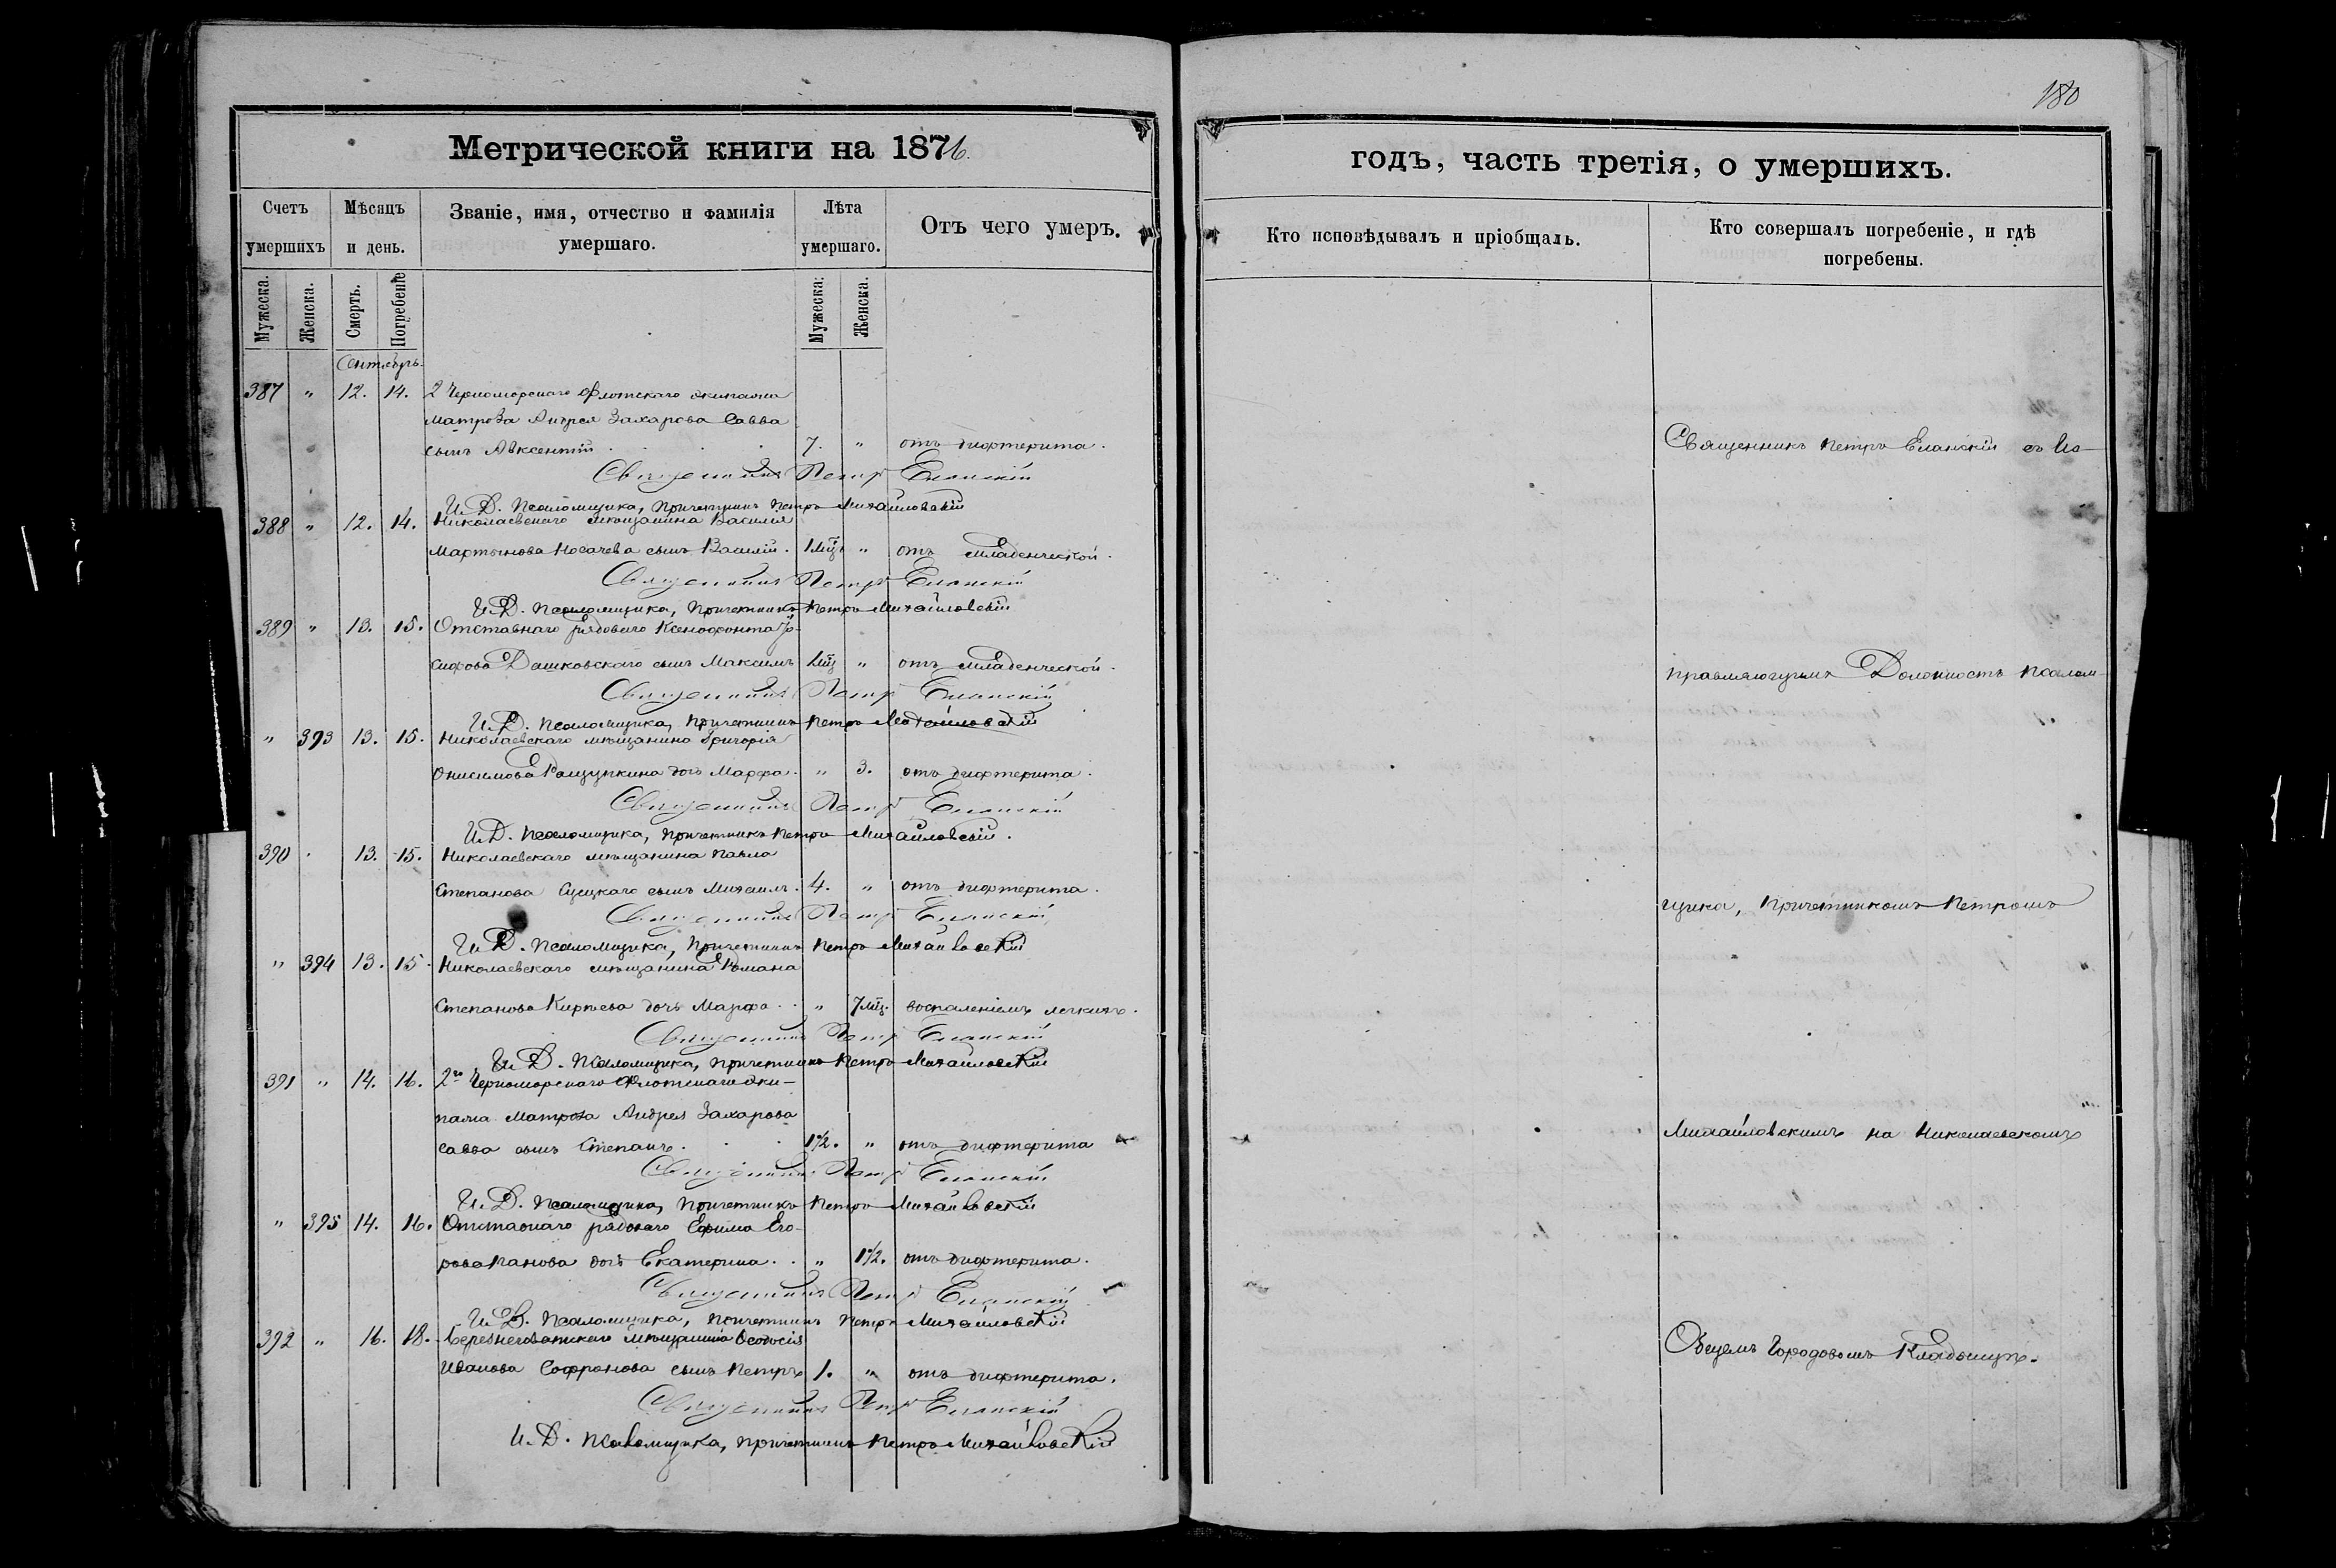 180
Метрической книги на 1876.
годъ, часть третія, о умершихъ.
Счетъ умершихъ
Мѣсяцъ и день.
Званіе, имя, отчество и фамилія умершаго.
Лѣта умершаго.
Отъ чего умеръ.
Кто исповѣдывалъ и пріобщалъ.
Кто совершалъ погребеніе, и гдѣ погребены.
Мужеска.
Женска.
Смерть.
Погребеніе
Мужеска.
Женска.
Сентябрь.
387 " 12. 14. 2 Черноморскаго Флотскаго экипажа
матроза Андрея Захарова Савва
сынъ Авксентій 7. " отъ дифтерита.
Священникъ Петръ Еланскій
И. Д. Псаломщика, Причетникъ Петръ Михайловскій
388 " 12. 14. Николаевскаго мѣщанина Василія
Мартынова Носачева сынъ Василій. 1 мц " отъ младенческой.
Священникъ Петръ Еланскій
И. Д. Псаломщика, Причетникъ Петръ Михайловскій
389 " 13. 15. Отставнаго рядоваго Ксенофонта
Дашковскаго сынъ Максимъ мц " отъ младенческой.
Священникъ Петръ Еланскій
И. Д. Псаломщика, Причетникъ Петръ Михайловскій
" 393 13. 15. Николаевскаго мѣщанина Григорія
Онисимова дочь Марфа. " 3. отъ дифтерита.
Священникъ Петръ Еланскій
И. Д. Псаломщика, Причетникъ Петръ Михайловскій.
390 . 13. 15. Николаевскаго мѣщанина Павла
Степанова сынъ Михаилъ. 4. " отъ дифтерита.
Священникъ Петръ Еланскій
И. Д. Псаломщика, Причетникъ Петръ Михайловскій
" 394 13. 15. Николаевскаго мѣщанина Романа
Степанова Кирѣева дочь Марфа. " 7 мц. воспаленіемъ легкихъ.
Священникъ Петръ Еланскій
И. Д. Псаломщика, Причетникъ Петръ Михайловскій
391 " 14. 16. 2го Черноморскаго Флотскаго эки-
пажа Матроза Андрея Захарова
Савва сынъ Степанъ. 1 1/2. " отъ дифтерита
Священникъ Петръ Еланскій
И. Д. Псаломщика, Причетникъ Петръ Михайловскій
" 395 14. 16. Отставнаго рядоваго Ефима Его-
рова Панова дочь Екатерина. " 1 1/2. отъ дифтерита.
Священникъ Петръ Еланскій
И. Д. Псаломщика, Причетникъ Петръ Михайловскій
392 " 16. 18. Березнеговатскаго Мѣщанина Ѳеодосія
Иванова Софронова сынъ Петръ 1. " отъ дифтерита.
Священникъ Петръ Еланскій
И. Д. Псаломщика, Причетникъ Петръ Михайловскій
Священникъ Петръ Еланскій съ Ис-
правляющимъ Должность Псалом-
щика, Причетникомъ Петромъ
Михайловскимъ на Николаевскомъ
Общемъ Городовомъ Кладбищѣ.